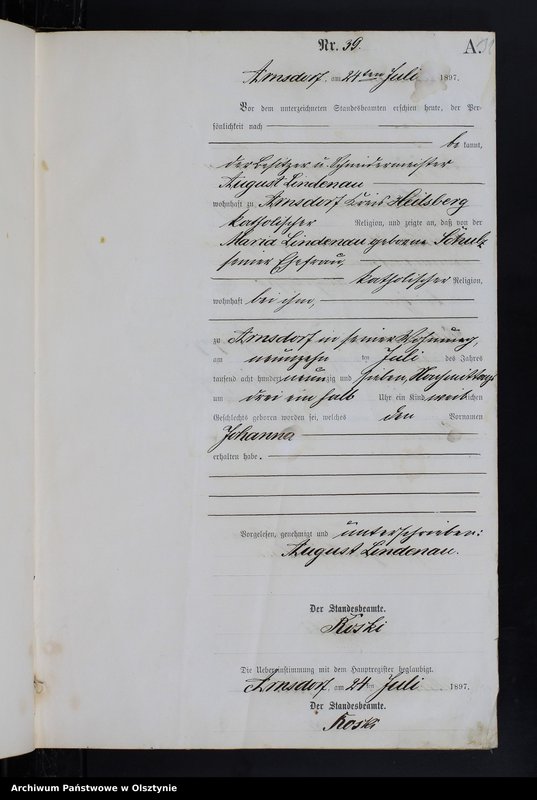 Nr. 39.
A.
Arnsdorf, am 24ten Juli 1897.
Vor dem unterzeichneten Standesbeamten erschien heute, der Per-
sönlichkeit nach
be kannt,
der Besitzer u. Schneidermeister
August Lindenau
wohnhaft zu Arnsdorf Kreis Heilsberg
katholischer Religion, und zeigte an, daß von der
Maria Lindenau geborene Schulz
seiner Ehefrau,
katholischer Religion,
wohnhaft bei ihm,
zu Arnsdorf in seiner Wohnung,
am neunzehn ten Juli des Jahres
tausend acht hundert neun zig und sieben, Nachmittags
um drei ein halb Uhr ein Kind weib lichen
Geschlechts geboren worden sei, welches den Vornamen
Johanna
erhalten habe.
Vorgelesen, genehmigt und unterschrieben:
August Lindenau.
Der Standesbeamte.
Koski
Die Uebereinstimmung mit dem Hauptregister beglaubigt.
Arnsdorf, am 24 ten Juli 1897.
Der Standesbeamte.
Koski
Archiwum Państwowe w Olsztynie